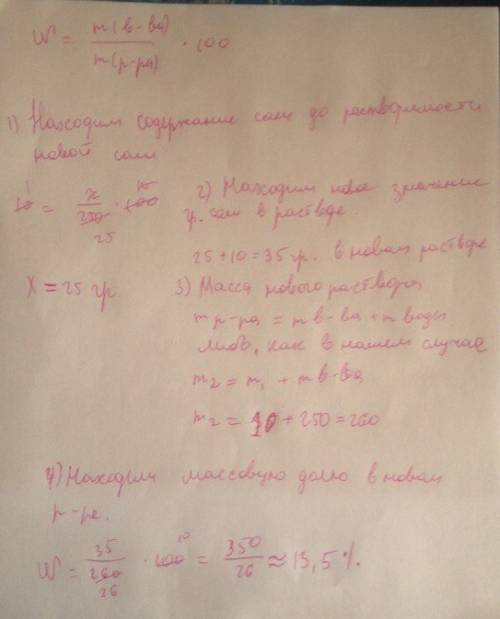 W = m(в-ва) / m(р-ра) · 100
1) Находим содержание соли до растворимости
новой соли
10 = x / 250 · 100
25
X = 25 гр.
2) Находим новое значение
гр. соли в растворе.
25 + 10 = 35 гр. в новом растворе
3) Масса нового раствора
m р-ра = m в-ва + m воды
либо, как в нашем случае
m₂ = m₁ + m в-ва
m₂ = 10 + 250 = 260
4) Находим массовую долю в новом
р-ре.
W = 35 / 260 · 100 = 350 / 26 ≈ 13,5 %.
26